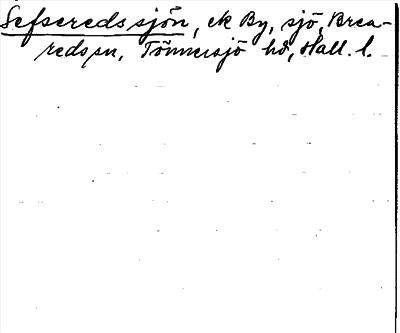 Sefseredssjön, ek By, sjö, Brea-
redssn, Tönnersjö hd, Hall. l.